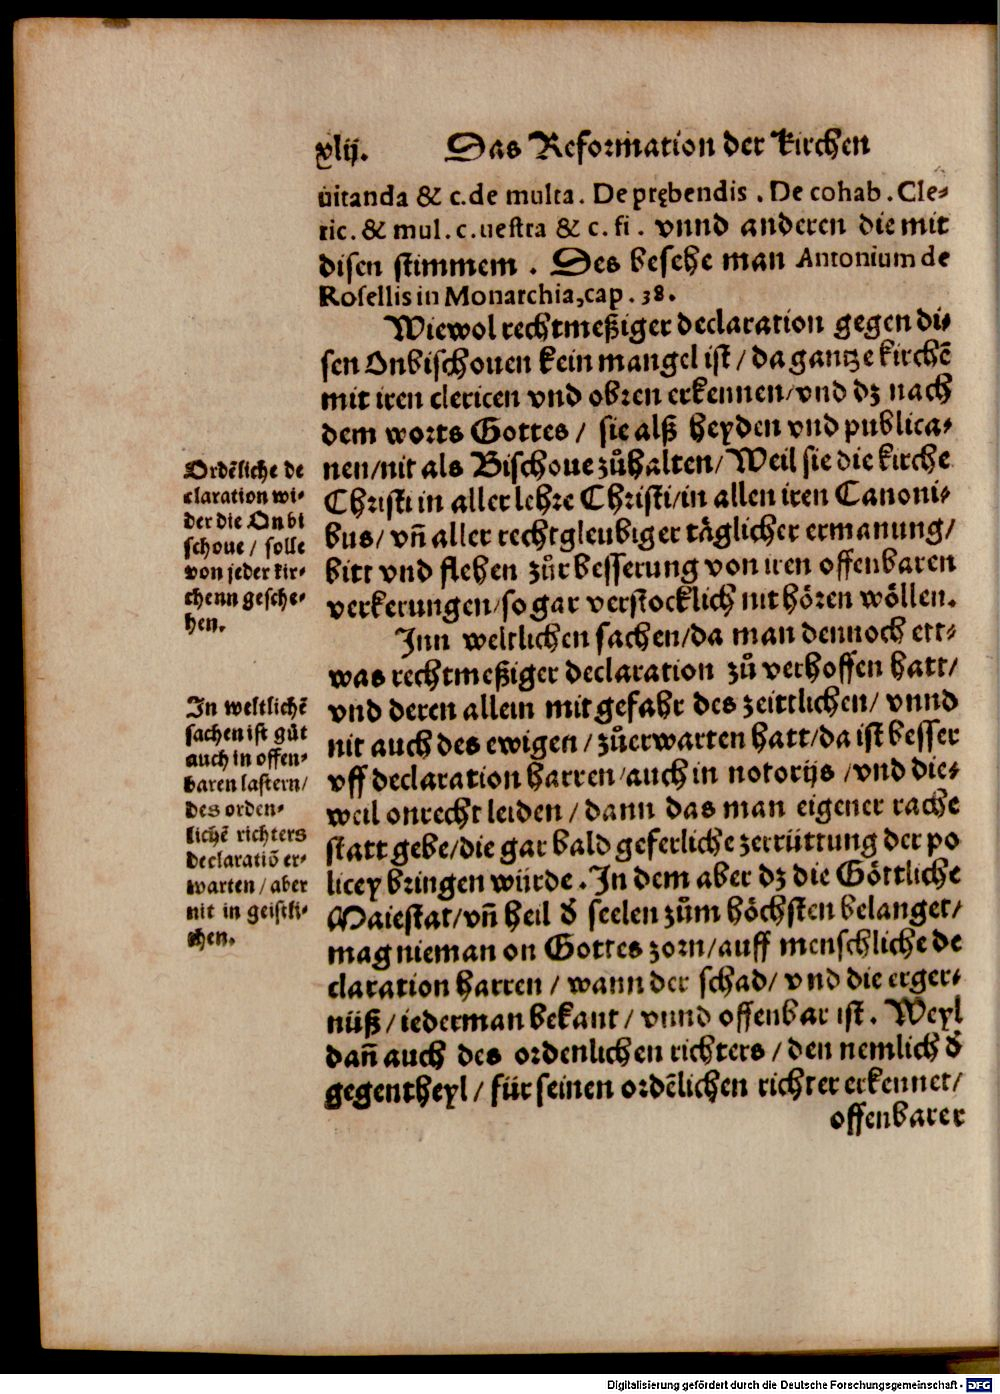 xlij. Das Reformation der Kirchen
uitanda & c. de multa. De prębendis. De cohab. Cle⸗
ric. & mul. c. uestra & c. fi. vnnd anderen die mit
disen stimmem. Des besehe man Antonium de
Rosellis in Monarchia, cap. 38.
Wiewol rechtmeßiger declaration gegen di⸗
sen Onbischouen kein mangel ist / da gantze kirchẽ
mit iren clericen vnd obren erkennen / vnd dz nach
dem worts Gottes / sie alß heyden vnd publica⸗
nen / nit als Bischoue zůhalten / Weil sie die kirche
Christi in aller lehre Christi / in allen iren Canoni⸗
bus / vñ aller rechtgleubiger täglicher ermanung /
bitt vnd flehen zůr besserung von iren offenbaren
verkerungen / so gar verstocklich nit hören wöllen.
Inn weltlichen sachen / da man dennoch ett⸗
was rechtmeßiger declaration zů verhoffen hatt /
vnd deren allein mit gefahr des zeittlichen / vnnd
nit auch des ewigen / zůerwarten hatt / da ist besser
vff declaration harren / auch in notorijs / vnd die⸗
weil onrecht leiden / dann das man eigener rache
statt gebe / die gar bald geferliche zerrüttung der po
licey bringen würde. In dem aber dz die Göttliche
Maiestat / vñ heil đ seelen zům höchsten belanget /
mag nieman on Gottes zorn / auff menschliche de
claration harren / wann der schad / vnd die erger⸗
nüß / iederman bekant / vnnd offenbar ist. Weyl
dañ auch des ordenlichen richters / den nemlich đ
gegentheyl / für seinen ordẽlichen richter erkennet /
offenbarer
Ordẽliche de
claration wi⸗
der die Onbi
schoue / solle
von jeder kir⸗
chenn gesche⸗
hen.
In weltlichẽ
sachen ist gůt
auch in offen⸗
baren lastern /
des orden⸗
lichẽ richters
declaratiõ er⸗
warten / aber
nit in geistli⸗
chen.
Digitalisierung gefördert durch die Deutsche Forschungsgemeinschaft - DFG